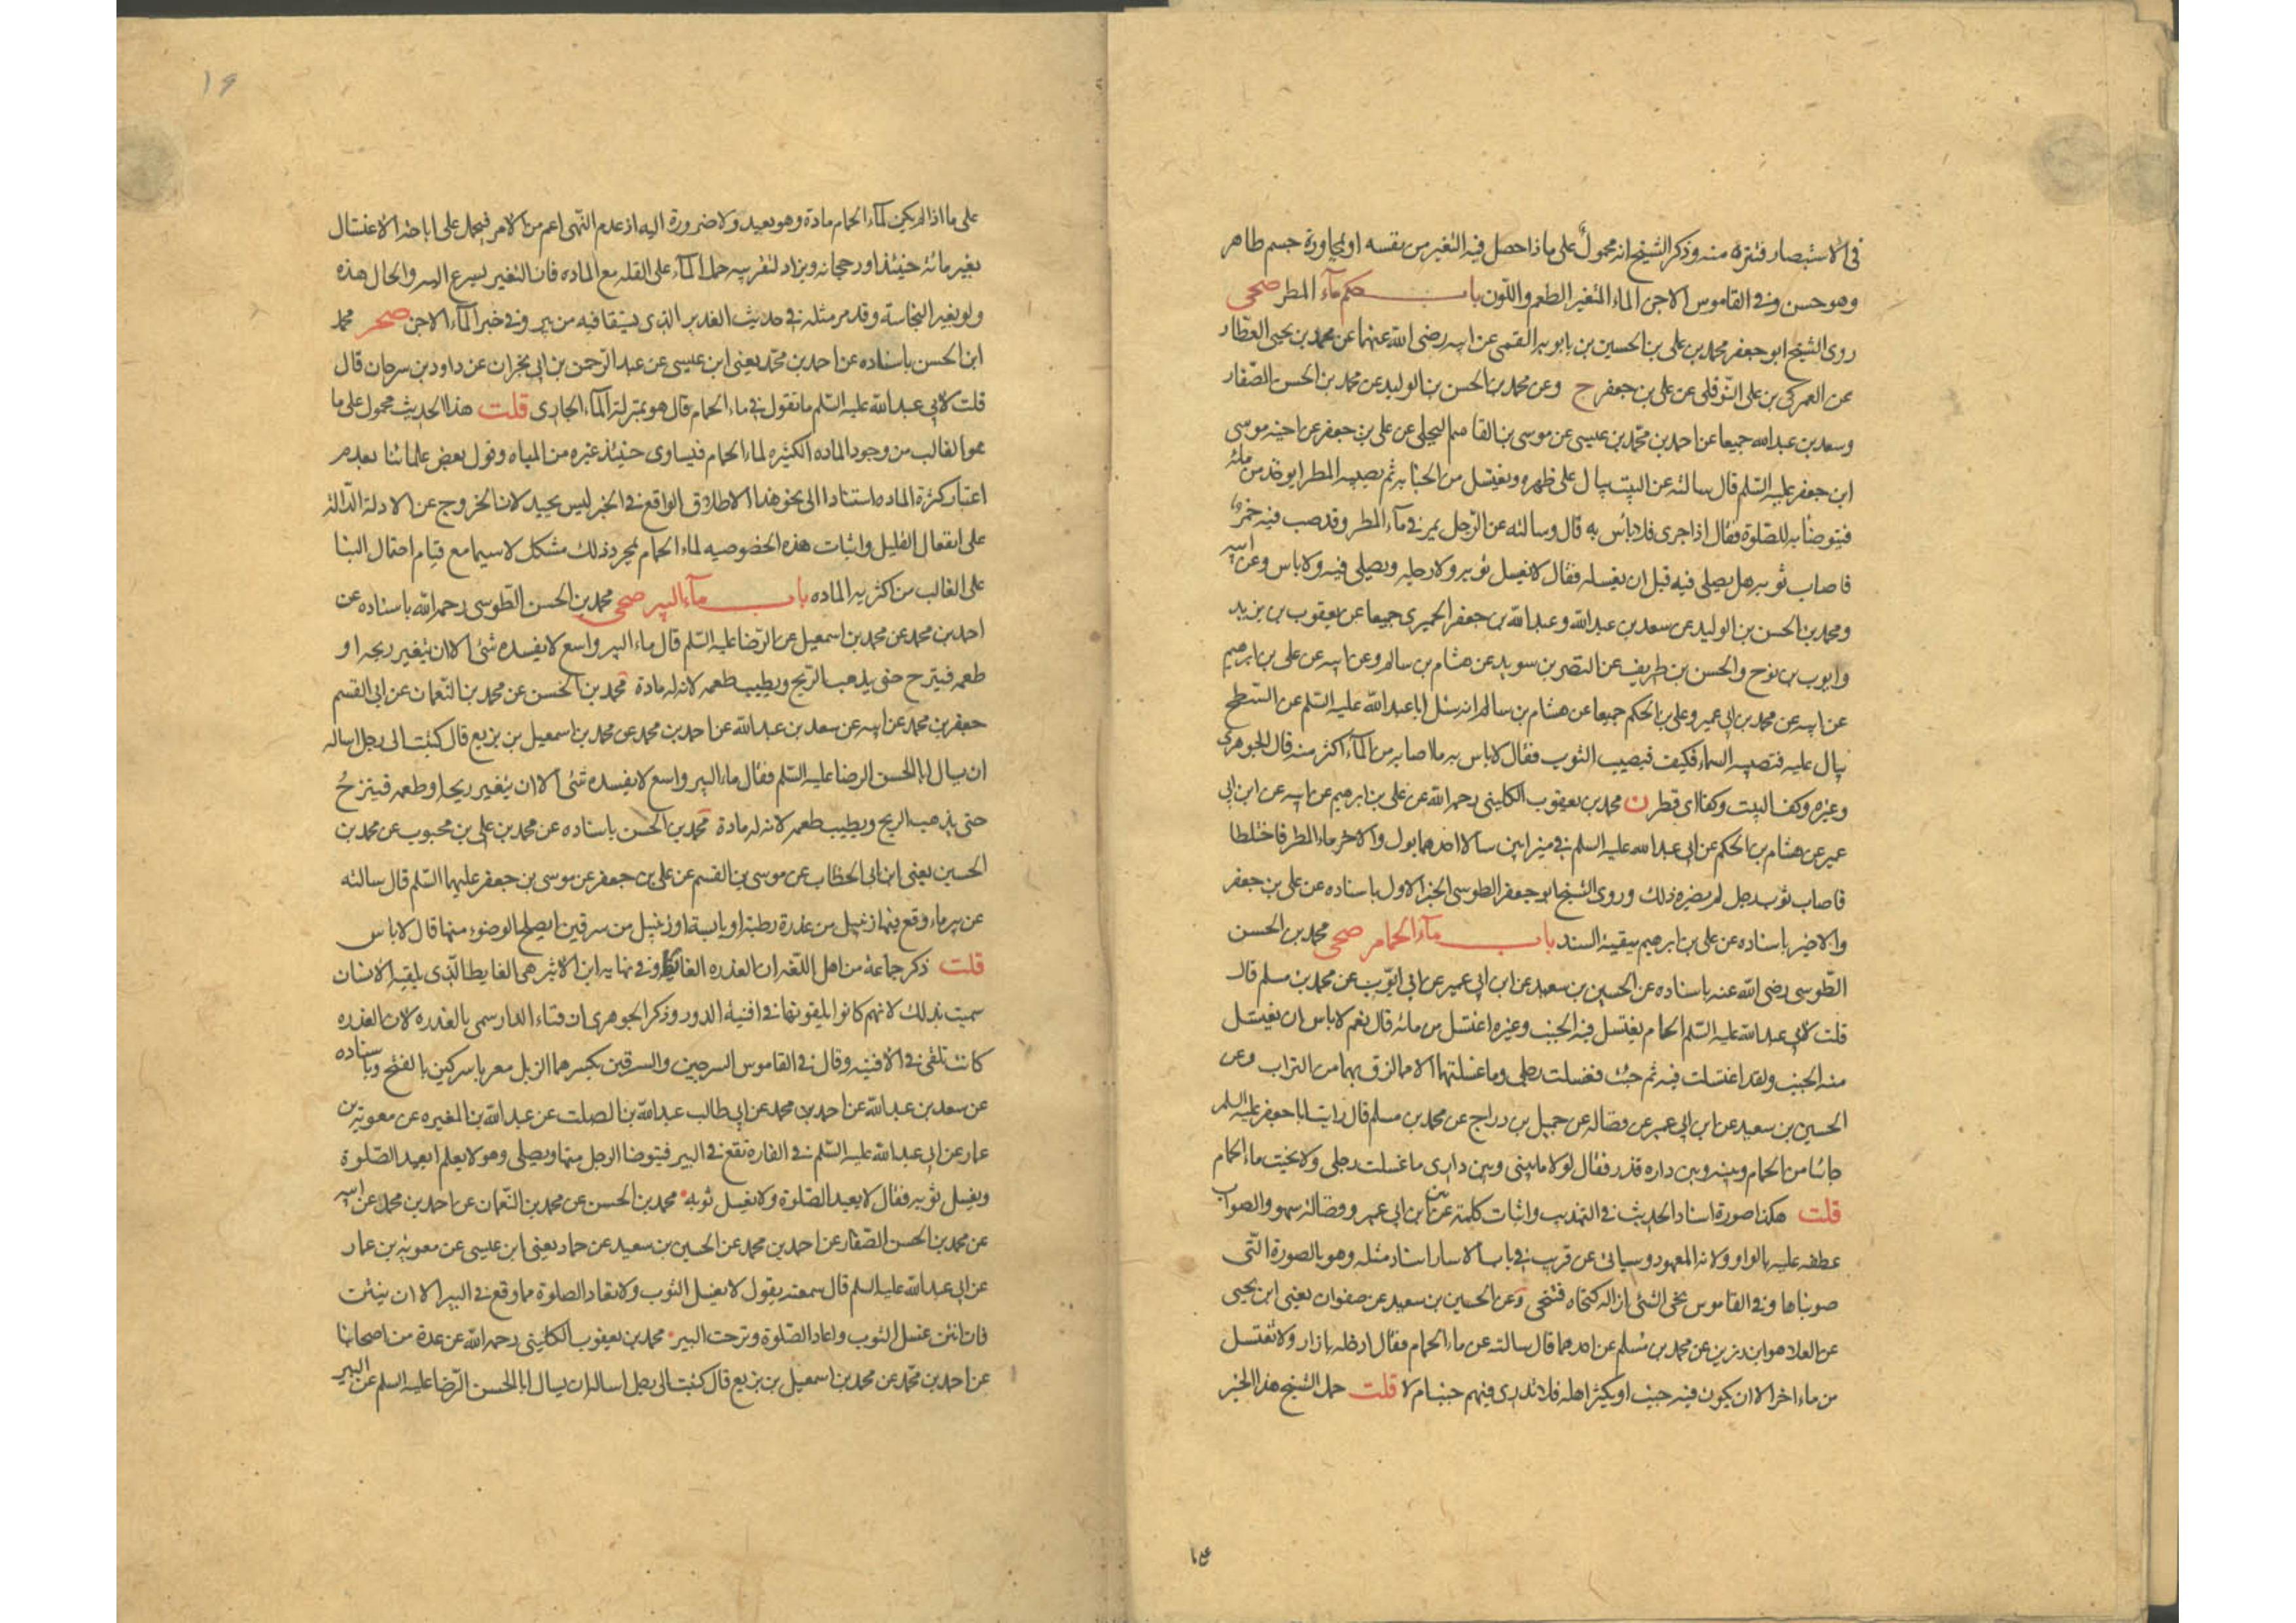 في الاستبصار فتنزه منه وذكر الشيخ انه محمول على ماذا حصل فيه التغير من نفسه او لمجاورة جسم طاهر
وهو حسن وفي القاموس الاجن الماء المتغير الطعم واللون باب حكم مآء المطر صحى
روى الشيخ ابو جعفر محمد بن على بن الحسين بن بابويه القمى عن ابيه رضى الله عنهما عن محمد بن يحيى العطار
عن العمركى بن على النوفلى عن على بن جعفر ح وعن محمد بن الحسن بن الوليد عن محمد بن الحسن الصفار
وسعد بن عبد الله جميعا عن احمد بن محمد بن عيسى عن موسى بن القاسم البجلى عن على بن جعفر عن اخيه موسى
ابن جعفر عليه السلم قال سالته عن البيت يبال على ظهره ويغتسل من الجنابه ثم يصيبه المطر ايوخذ من مائه
فيتوضأ به للصلوة فقال اذا جرى فلا بأس به قال وسالته عن الرجل يمر في مآء المطر وقد صب فيه خمر
فاصاب ثوبه هل يصلى فيه قبل ان يغسله فقال لا يغسل ثوبه ولا رجليه ويصلى فيه ولا باس وعن ابيه
ومحمد بن الحسن بن الوليد عن سعد بن عبد الله وعبد الله بن جعفر الحميرى جميعا عن يعقوب بن يزيد
وايوب بن نوح والحسن بن طريف عن النضر بن سويد عن هشام بن سالم وعن ابيه عن على بن ابرهيم
عن ابيه عن محمد بن ابى عمير وعلى بن الحكم جميعا عن هشام بن سالم انه سئل ابا عبد الله عليه السلم عن السطح
يبال عليه فتصيبه السماء فكيف فيصيب الثوب فقال لا باس به ما اصابه من المآء اكثر منه قال الجوهرى
وغيره وكف البيت وكفا اى قطر ن محمد بن يعقوب الكلينى رحمه الله عن على بن ابرهيم عن ابيه عن ابن ابى
عمير عن هشام بن الحكم عن ابى عبد الله عليه السلم في ميزابين سالا احدهما بول والاخر ماء المطر فاختلطا
فاصاب ثوب رجل لم يضره ذلك وروى الشيخ ابو جعفر الطوسى الخبر الاول باسناده عن على بن جعفر
والاخير باسناده عن على بن ابرهيم ببقية السند باب مآء الحمام صحى محمد بن الحسن
الطوسى رضى الله عنه باسناده عن الحسين بن سعيد عن ابن ابى عمير عن ابى ايوب عن محمد بن مسلم قال
قلت لابى عبد الله عليه السلم الحمام يغتسل فيه الجنب وغيره اغتسل من مائه قال نعم لا باس ان يغتسل
منه الجنب ولقد اغتسلت فيه ثم جئت فغسلت رجلى وما غسلتهما الا مما لزق بهما من التراب وعن
الحسين بن سعيد عن ابن ابى عمير عن فضاله عن جميل بن دراج عن محمد بن مسلم قال رايت ابا جعفر عليه السلم
جائيا من الحمام وبينه وبين داره قذر فقال لولا ما بينى وبين دارى ما غسلت رجلى ولا نحيت ماء الحمام
قلت هكذا صورة اسناد الحديث في التهذيب واثبات كلمة عن بين ابن ابى عمير وفضالة سهو والصواب
عطفه عليه بالواو ولانه المعهود وسياتى عن قرب في باب الاسار اسناد مثله وهو بالصورة التى
صوبناها وفي القاموس نحى الشئ ازاله كنحاه فتنحى وعن الحسين بن سعيد عن صفوان يعنى ابن يحيى
عن العلا هو ابن رزين عن محمد بن مسلم عن احدهما قال سالته عن ماء الحمام فقال ادخله بازار ولا تغتسل
من ماء اخر الا ان يكون فيه جنب او يكثر اهله فلا تدرى فيهم جنب ام لا قلت حمل الشيخ هذا الخبر
ع ١
١٩
على ما اذا لم يكن لمآء الحمام مادة وهو بعيد ولا ضرورة اليه اذ عدم النهى اعم من الامر فيحمل على اباحة الاغتسال
بغير مائه حينئذ او رجحانه ويزاد لتقريبه حمل المآء على القله مع الماده فان التغير يسرع اليه والحال هذه
ولو بغير النجاسة وقد مر مثله في حديث الغدير الذى يستقا فيه من بير وفي خبر المآء الاجن صحر محمد
ابن الحسن باسناده عن احمد بن محمد يعنى ابن عيسى عن عبد الرحمن بن ابى نجران عن داود بن سرحان قال
قلت لابى عبد الله عليه السلم ما تقول في ماء الحمام قال هو بمنزلة المآء الجارى قلت هذا الحديث محمول على ما
هو الغالب من وجود الماده الكثيره لماء الحمام فيساوى حينئذ غيره من المياه وقول بعض علمائنا بعدم
اعتبار كثرة الماده استنادا الى نحو هذا الاطلاق الواقع في الخبر ليس بجيد لان الخروج عن الادلة الدالة
على انفعال القليل واثبات هذه الخصوصيه لماء الحمام بمجرد ذلك مشكل لاسيما مع قيام احتمال البنا
على الغالب من اكثريه الماده باب مآء البير صحى محمد بن الحسن الطوسى رحمه الله باسناده عن
احمد بن محمد عن محمد بن اسمعيل عن الرضا عليه السلم قال ماء البير واسع لا يفسده شئ الا ان يتغير ريحه او
طعمه فينزح حتى يذهب الريح ويطيب طعمه لانه له مادة محمد بن الحسن عن محمد بن النعمان عن ابى القسم
جعفر بن محمد عن ابيه عن سعد بن عبد الله عن احمد بن محمد عن محمد بن اسمعيل بن بزيع قال كتبت الى رجل اساله
ان يسال ابا الحسن الرضا عليه السلم فقال ماء البير واسع لا يفسده شئ الا ان يتغير ريحه او طعمه فينزح
حتى يذهب الريح ويطيب طعمه لانه له مادة محمد بن الحسن باسناده عن محمد بن على بن محبوب عن محمد بن
الحسين يعنى ابن ابى الخطاب عن موسى بن القسم عن على بن جعفر عن موسى بن جعفر عليهما السلم قال سالته
عن بير ماء وقع فيها زنبيل من عذرة رطبة او يابسة او زنبيل من سرقين ايصلح الوضوء منها قال لا باس
قلت ذكر جماعة من اهل اللغه ان العذره الغايط وفي نهايه ابن الاثير هى الغايط الذى يلقيه الانسان
سميت بذلك لانهم كانوا يلقونها في افنية الدور وذكر الجوهرى ان فناء الدار سمى بالعذره لان العذره
كانت تلقى في الافنيه وقال في القاموس السرجين والسرقين بكسرهما الزبل معربا سركين بالفتح وباسناده
عن سعد بن عبد الله عن احمد بن محمد عن ابى طالب عبد الله بن الصلت عن عبد الله بن المغيره عن معوية بن
عمار عن ابى عبد الله عليه السلم في الفاره تقع في البير فيتوضا الرجل منها ويصلى وهو لا يعلم ايعيد الصلوة
ويغسل ثوبه فقال لا يعيد الصلوة ولا يغسل ثوبه محمد بن الحسن عن محمد بن النعمان عن احمد بن محمد عن ابيه
عن محمد بن الحسن الصفار عن احمد بن محمد عن الحسين بن سعيد عن حماد يعنى ابن عيسى عن معوية بن عمار
عن ابى عبد الله عليه السلم قال سمعته يقول لا يغسل الثوب ولا تعاد الصلوة مما وقع في البير الا ان ينتن
فان انتن غسل الثوب واعاد الصلوة ونزحت البير محمد بن يعقوب الكلينى رحمه الله عن عدة من اصحابنا
عن احمد بن محمد عن محمد بن اسمعيل بن بزيع قال كتبت الى رجل اساله ان يسال ابا الحسن الرضا عليه السلم عن البير